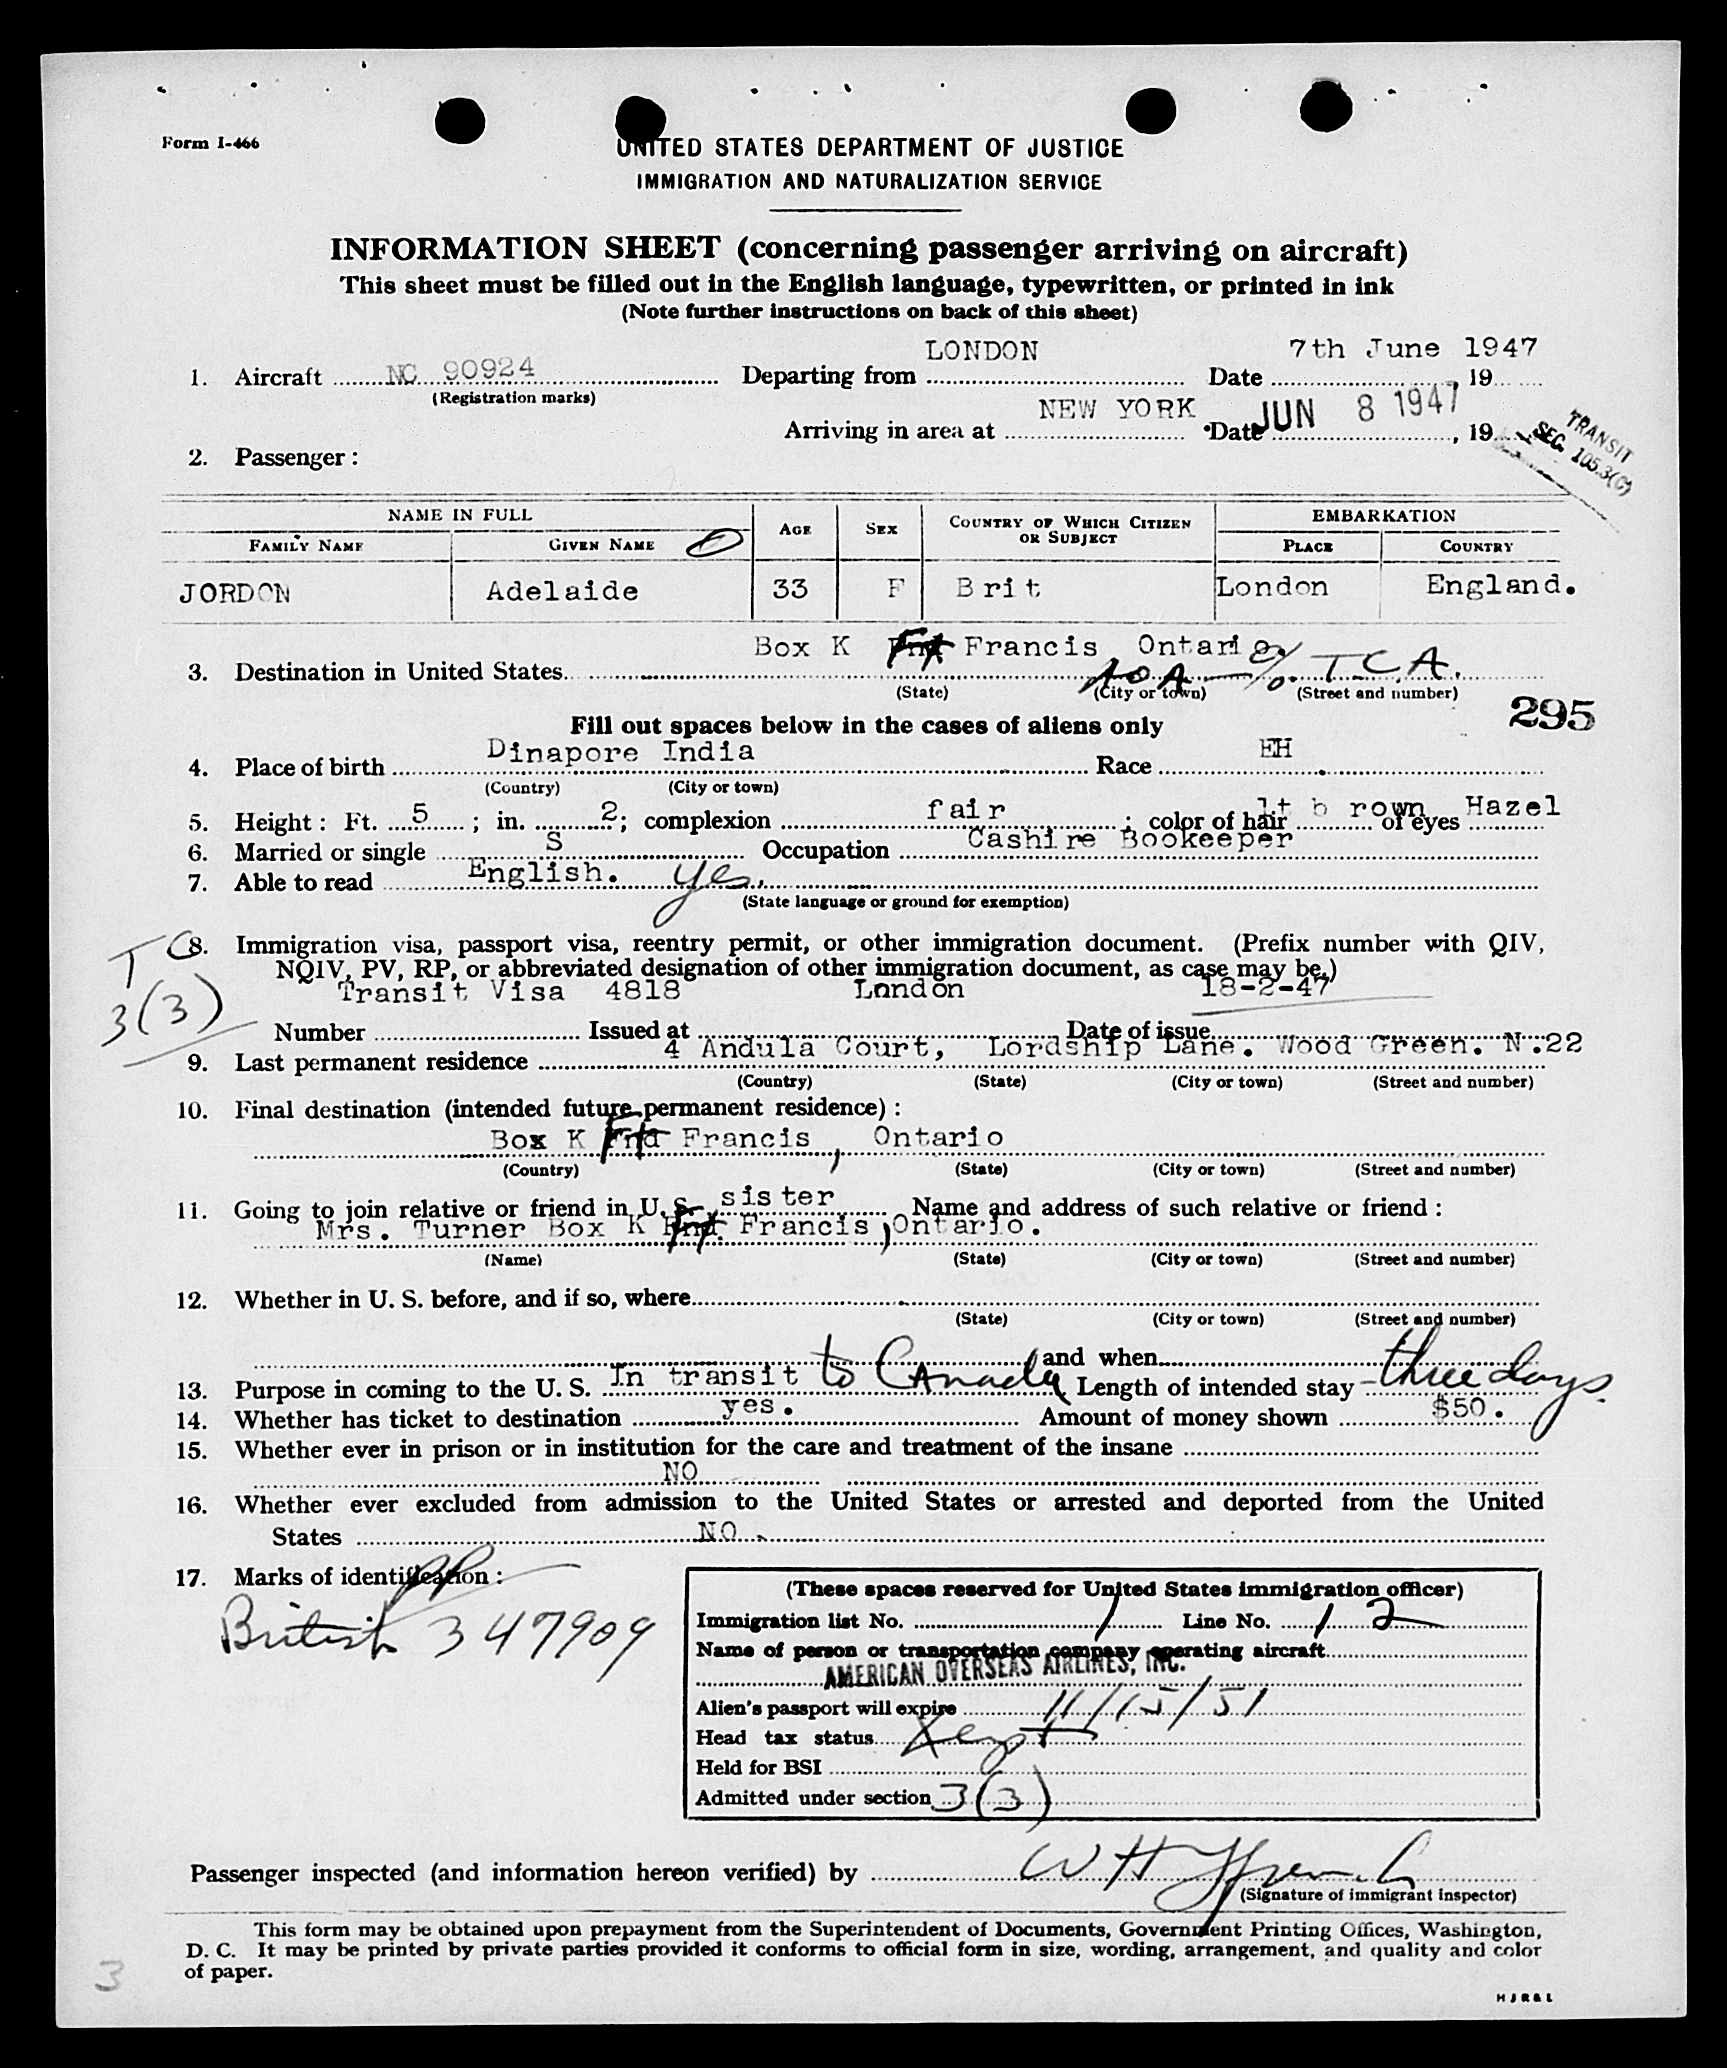 Form I-466
UNITED STATES DEPARTMENT OF JUSTICE
IMMIGRATION AND NATURALIZATION SERVICE
INFORMATION SHEET (concerning passenger arriving on aircraft)
This sheet must be filled out in the English language, typewritten, or printed in ink
(Note further instructions on back of this sheet)
1. Aircraft NC 90924 Departing from LONDON Date 7th June 1947, 19
(Registration marks)
Arriving in area at NEW YORK Date JUN 8 1947, 19
TRANSIT
SEC. 105.3(C)
2. Passenger:
NAME IN FULL AGE SEX COUNTRY OF WHICH CITIZEN OR SUBJECT EMBARKATION
FAMILY NAME GIVEN NAME PLACE COUNTRY
JORDON Adelaide 33 F Brit London England.
3. Destination in United States Box K Frt Francis, Ontario % T.C.A.
AOA
(State) (City or town) (Street and number)
295
Fill out spaces below in the cases of aliens only
4. Place of birth Dinapore India Race EH
(Country) (City or town)
5. Height: Ft. 5; in. 2; complexion fair; color of hair lt brown of eyes Hazel
6. Married or single S Occupation Cashire Bookeeper
7. Able to read English. yes.
(State language or ground for exemption)
TC
3(3)
8. Immigration visa, passport visa, reentry permit, or other immigration document. (Prefix number with QIV,
NQIV, PV, RP, or abbreviated designation of other immigration document, as case may be.)
Transit Visa 4818 London 18-2-47
Number Issued at Date of issue
9. Last permanent residence 4 Andula Court, Lordship Lane. Wood Green. N.22
(Country) (State) (City or town) (Street and number)
10. Final destination (intended future permanent residence):
Box K Frt Francis, Ontario
(Country) (State) (City or town) (Street and number)
11. Going to join relative or friend in U. S. sister Name and address of such relative or friend:
Mrs. Turner Box K Frt. Francis, Ontario.
(Name) (State) (City or town) (Street and number)
12. Whether in U. S. before, and if so, where
(State) (City or town) (Street and number)
and when
13. Purpose in coming to the U. S. In transit to Canada Length of intended stay three days.
14. Whether has ticket to destination yes. Amount of money shown $50.
15. Whether ever in prison or in institution for the care and treatment of the insane
NO
16. Whether ever excluded from admission to the United States or arrested and deported from the United
States NO.
17. Marks of identification:
PP
British 347909
(These spaces reserved for United States immigration officer)
Immigration list No. 1 Line No. 12
Name of person or transportation company operating aircraft
AMERICAN OVERSEAS AIRLINES, INC.
Alien's passport will expire 11/15/51
Head tax status
Held for BSI
Admitted under section 3(3)
Passenger inspected (and information hereon verified) by W H
(Signature of immigrant inspector)
This form may be obtained upon prepayment from the Superintendent of Documents, Government Printing Offices, Washington,
D. C. It may be printed by private parties provided it conforms to official form in size, wording, arrangement, and quality and color
of paper.
3
HJR&L